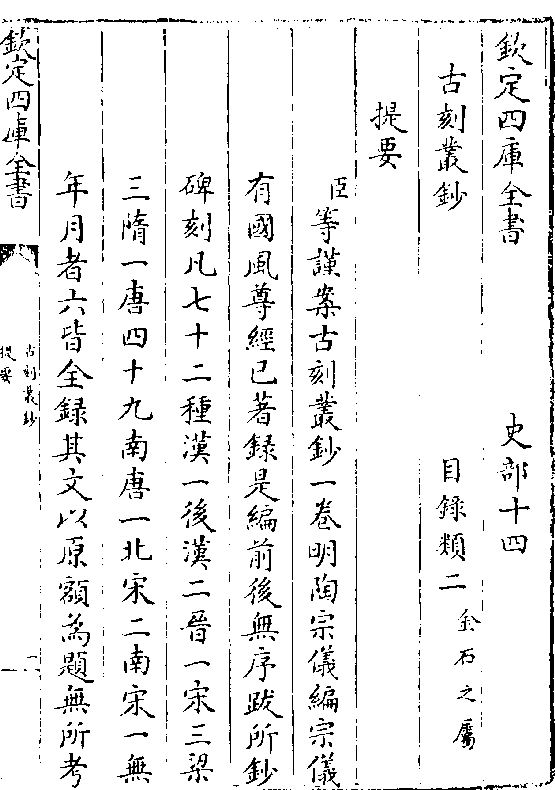 欽定四庫全書　史部十四
古刻叢鈔　目録類二金石之屬
提要
臣等謹案古刻叢鈔一卷明陶宗儀編宗儀
有國風尊經已著録是編前後無序跋所鈔
碑刻凡七十二種漢一後漢二晉一宋三梁
三隋一唐四十九南唐一北宋二南宋一無
年月者六皆全録其文以原額為題無所考
欽定四庫全書
古刻叢鈔
提要
一